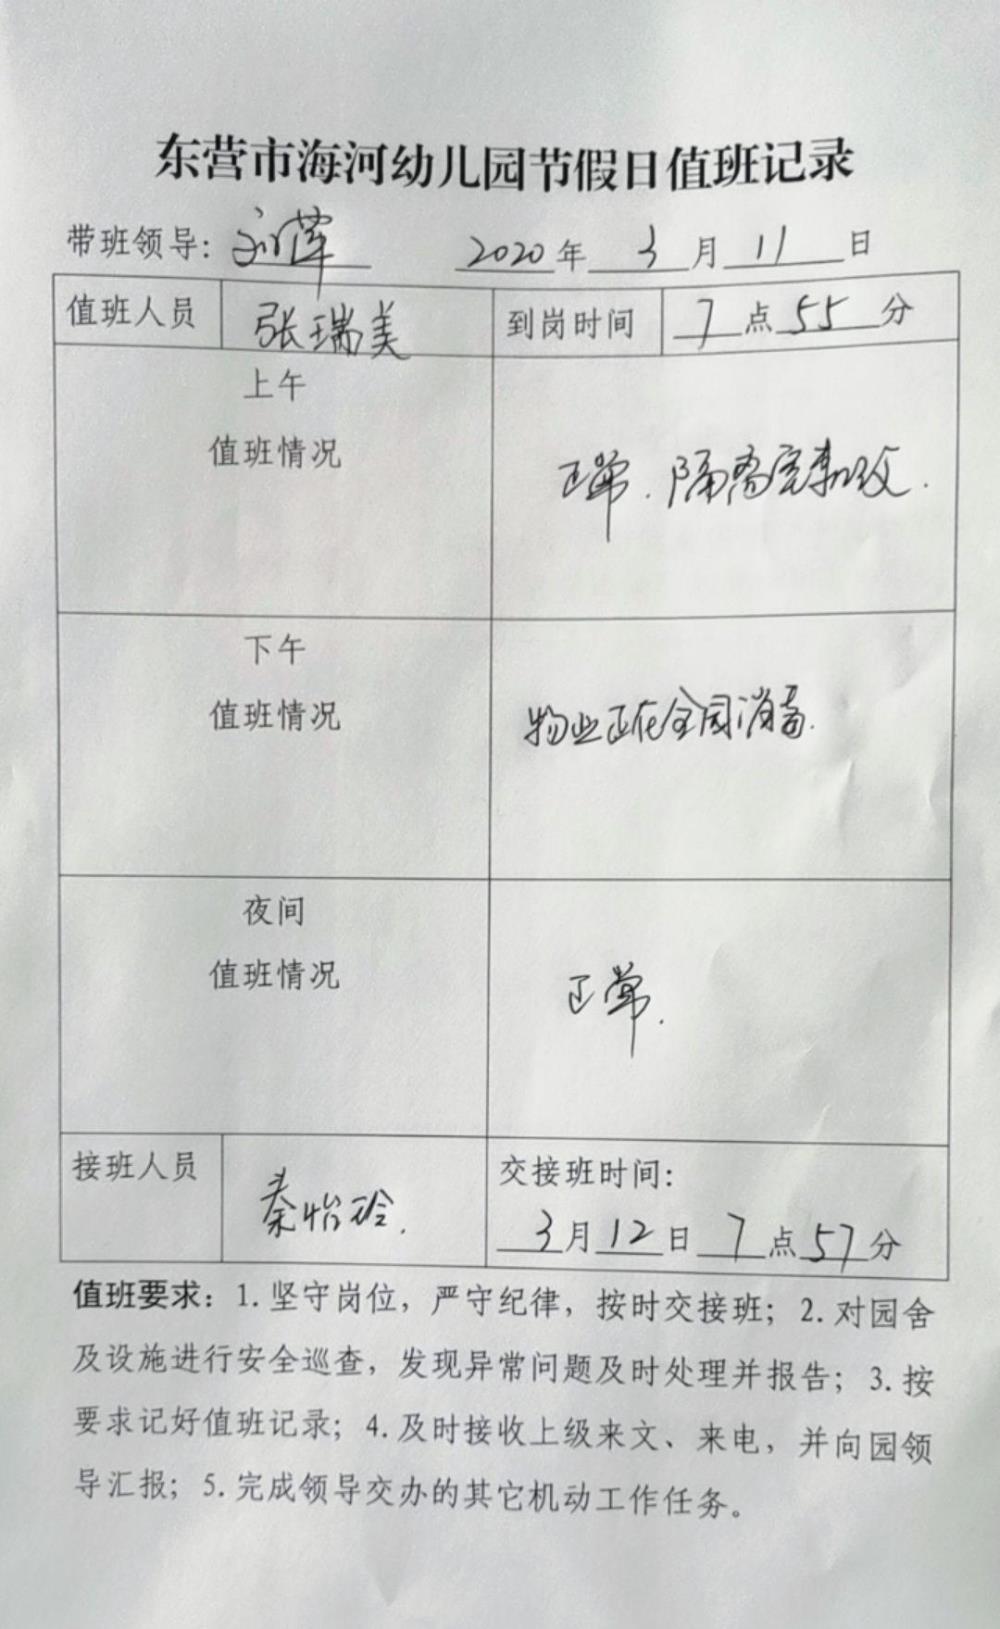 东营市海河幼儿园节假日值班记录
带班领导: 刘萍 2020年 3月 11日
值班人员 张瑞美 到岗时间 7点55分
上午
值班情况
正常.隔离室
下午
值班情况
物业正在全园消毒.
夜间
值班情况
正常.
接班人员 秦怡玲. 交接班时间:
3月12日 7点57分
值班要求: 1. 坚守岗位, 严守纪律, 按时交接班; 2. 对园舍
及设施进行安全巡查, 发现异常问题及时处理并报告; 3. 按
要求记好值班记录; 4. 及时接收上级来文、来电, 并向园领
导汇报; 5. 完成领导交办的其它机动工作任务。